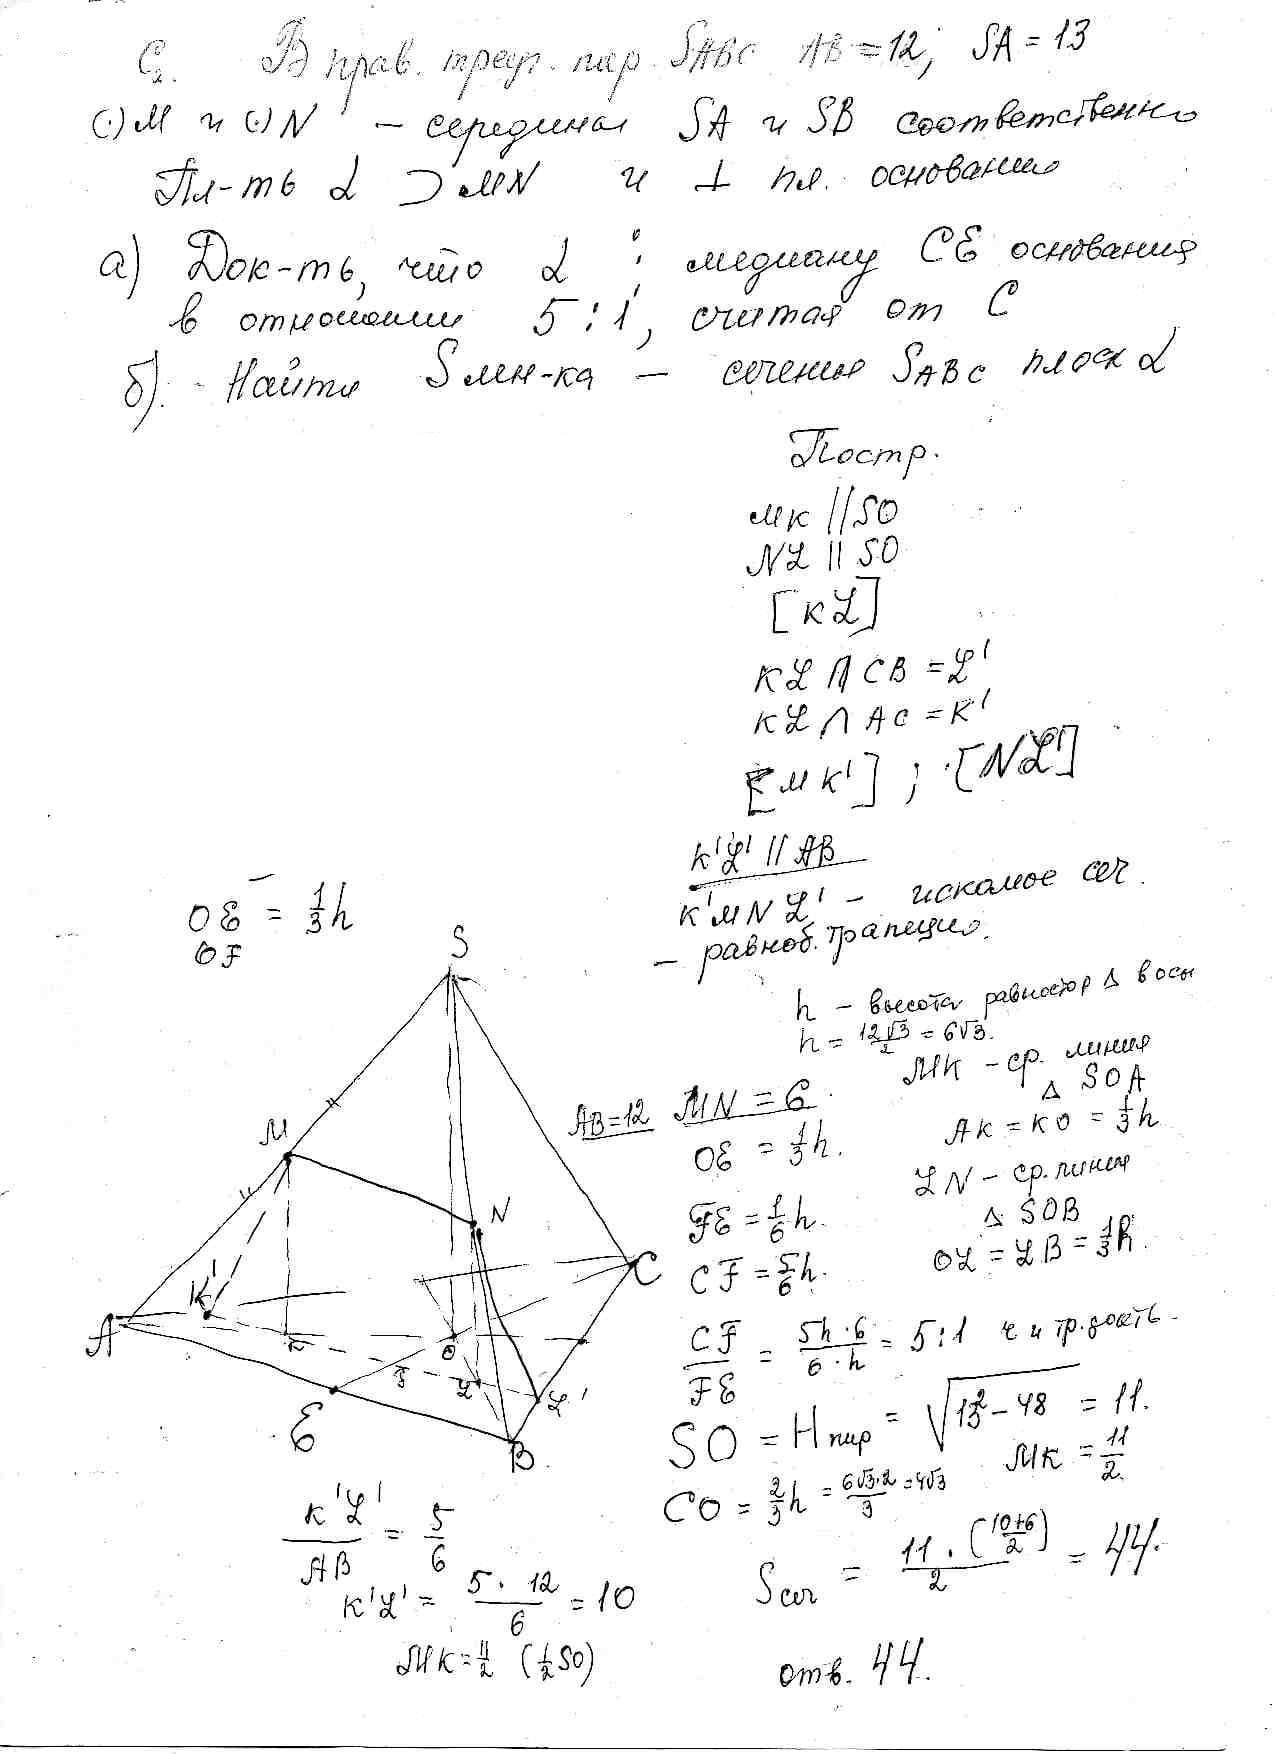 C₂. В прав. треуг. пир. SABC AB = 12; SA = 13
(·)M и (·)N – середина SA и SB соответственно
Пл-ть α ⊃ MN и ⊥ пл. основанию
а) Док-ть, что α ⋮ медиану CE основания
в отношении 5:1, считая от C
б). Найти S мн-ка – сечения SABC плоск α
Постр.
MK // SO
NL || SO
[KL]
KL ∩ CB = L'
KL ∩ AC = K'
[MK'] ; [NL']
K'L' // AB
K'MNL' – искомое сеч.
– равноб. трапеция.
h – высота равностор Δ в осн
h = 12√3/2 = 6√3.
MK – ср. линия
Δ SOA
AK = KO = 1/3 h
LN – ср. линия
Δ SOB
OL = LB = 1/3 h.
OE = 1/3 h
OF
S
M
N
K'
C
A
K
O
F
L
L'
E
B
AB=12 MN = 6
OE = 1/3 h.
FE = 1/6 h.
CF = 5/6 h.
CF/FE = 5h·6/6·h = 5:1 ч и тр. док-ть
SO = H пир = √13²–48 = 11.
MK = 11/2.
CO = 2/3 h = 6√3·2/3 = 4√3
S сеч = 11·(10+6/2)/2 = 44.
K'L'/AB = 5/6
K'L' = 5·12/6 = 10
MK = 11/2 (1/2 SO)
отв. 44.